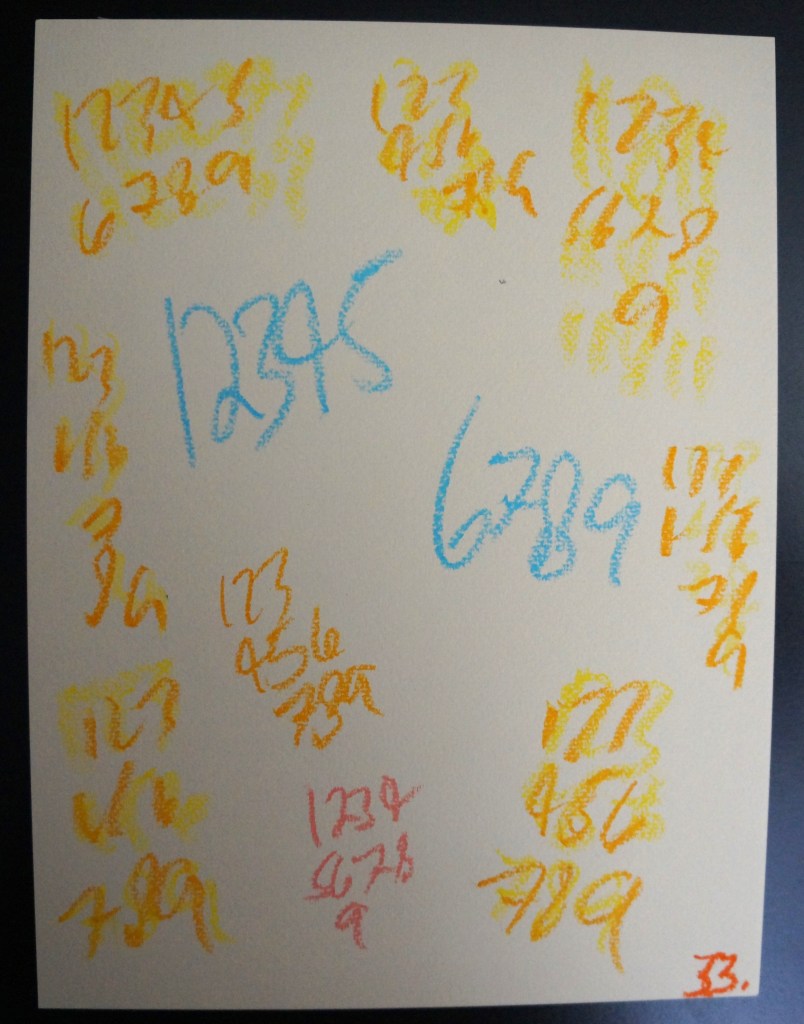 12345
6789
123
456
789
1234
5678
9
12345
6789
123
456
7
89
123
456
78
9
123
456
789
123
456
789
1234
5678
9
123
456
789
33.